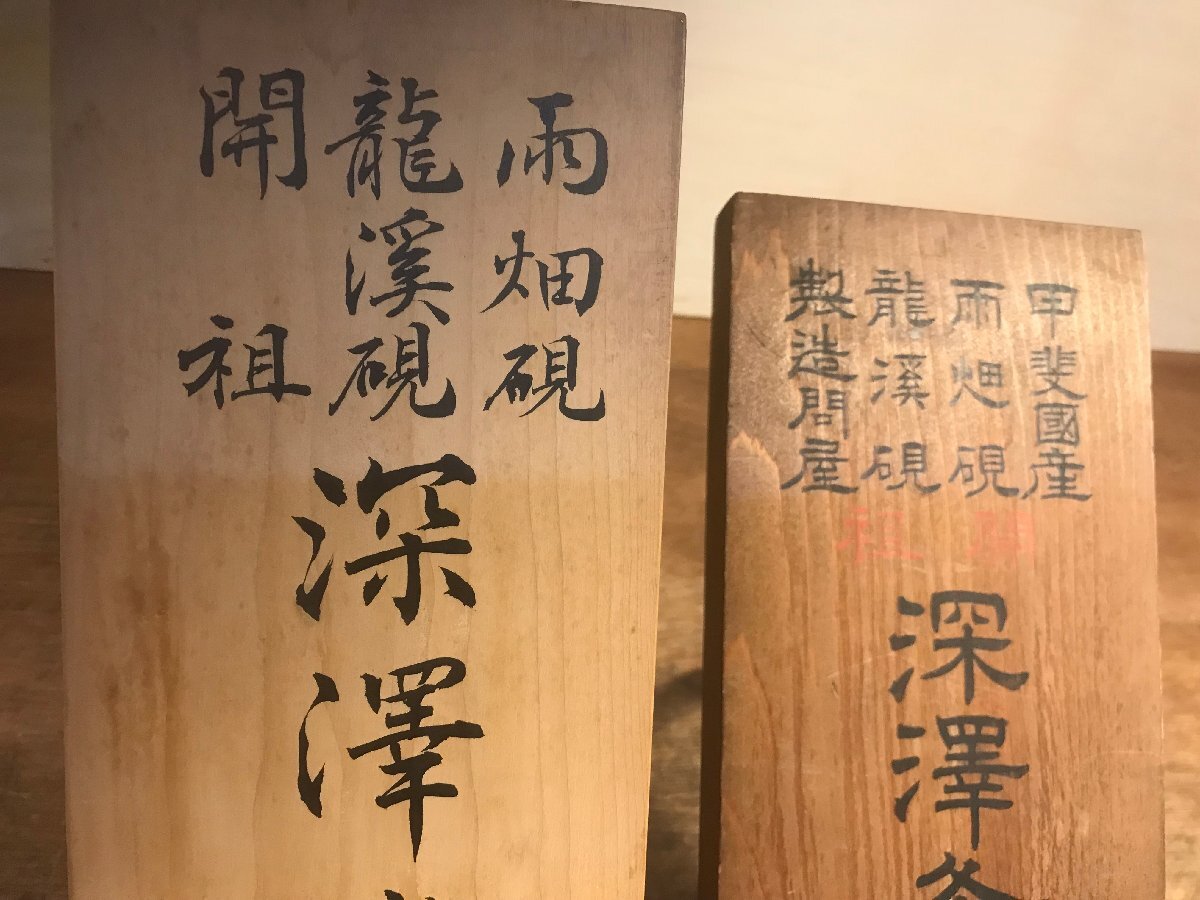 雨畑硯
龍溪硯
開祖
深澤
甲斐國産
雨畑硯
龍溪硯
製造問屋
開祖
深澤